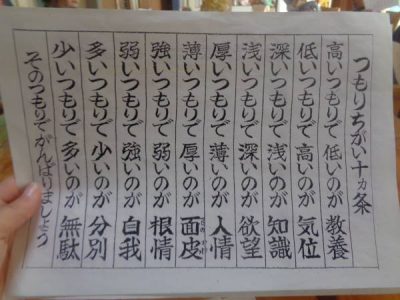 つもりちがい十ヵ条
高いつもりで低いのが教養
低いつもりで高いのが気位
深いつもりで浅いのが知識
浅いつもりで深いのが欲望
厚いつもりで薄いのが人情
薄いつもりで厚いのが面皮
強いつもりで弱いのが根情
弱いつもりで強いのが自我
多いつもりで少いのが分別
少いつもりで多いのが無駄
そのつもりでがんばりましょう